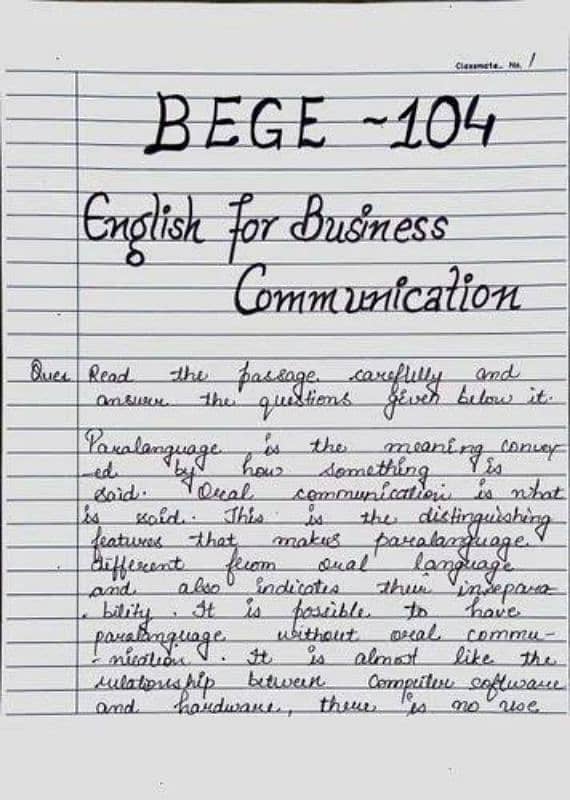 Classmate No. 1
BEGE ~104
English for Business
Communication
Ques Read the passage carefully and
answer the questions given below it.
Paralanguage is the meaning convey
-ed by how something is
said. Oral communication is what
is said. This is the distinguishing
features that makes paralanguage
different from oral language
and also indicates their insepara
bility. It is possible to have
paralanguage without oral commu-
-nication. It is almost like the
relationship between Computer software
and hardware, there is no use